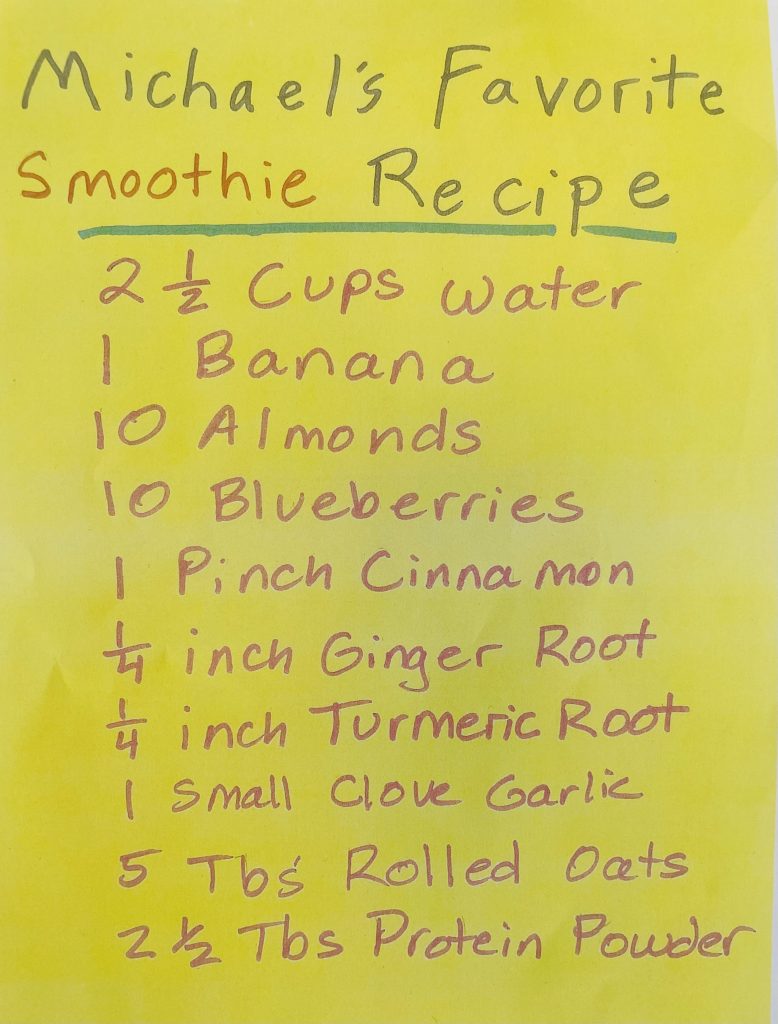 Michael's Favorite
Smoothie Recipe
2 1/2 Cups Water
1 Banana
10 Almonds
10 Blueberries
1 Pinch Cinnamon
1/4 inch Ginger Root
1/4 inch Turmeric Root
1 Small Clove Garlic
5 Tbs Rolled Oats
2 1/2 Tbs Protein Powder